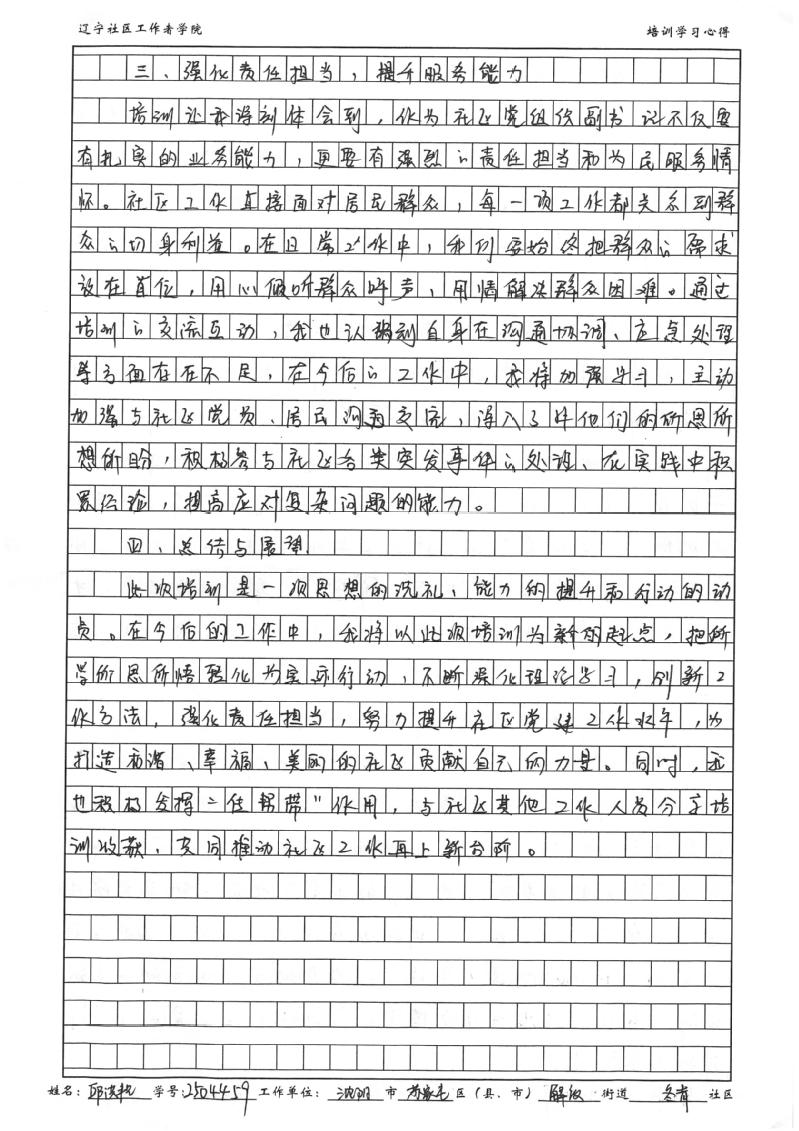 辽宁社区工作者学院 培训学习心得
三、强化责任担当，提升服务能力
培训让我深刻体会到，作为社区党组织副书记不仅要
有扎实的业务能力，更要有强烈的责任担当和为民服务情
怀。社区工作直接面对居民群众，每一项工作都关系到群
众的切身利益。在日常工作中，我们要始终把群众的需求
放在首位，用心倾听群众呼声、用情解决群众困难。通过
培训的交流互动，我也认识到自身在沟通协调、应急处理
等方面存在不足，在今后的工作中，我将加强学习，主动
加强与社区党员、居民沟通交流，深入了解他们的所思所
想所盼，积极参与社区各类突发事件的处理、在实践中积
累经验，提高应对复杂问题的能力。
四、总结与展望
此次培训是一次思想的洗礼、能力的提升和行动的动
员。在今后的工作中，我将以此次培训为新的起点，把所
学所思所悟转化为实际行动，不断深化理论学习，创新工
作方法，强化责任担当，努力提升社区党建工作水平，为
打造和谐、幸福、美丽的社区贡献自己的力量。同时，我
也积极发挥“传帮带”作用，与社区其他工作人员分享培
训收获，共同推动社区工作再上新台阶。
姓名： 学号：2504459 工作单位：沈阳市苏家屯区（县、市）解放街道冬青社区